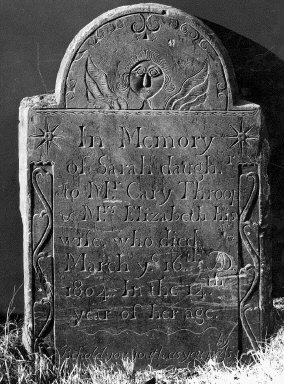 In Memory
of Sarah daugh.r
to Mr. Cary Throop
& Mrs. Elizabeth his
wife, who died
March ye 16th
1804. In the 14th
year of her age.